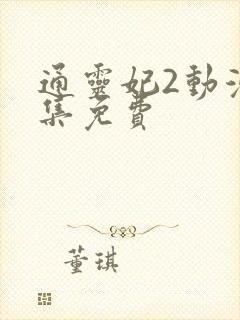 通靈妃2動
集免費
董琪